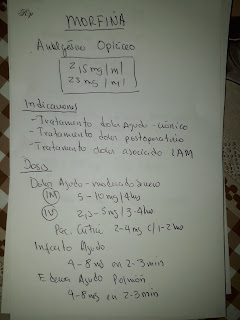 MORFINA
Analgésico Opiáceo
2,5 mg/ml
25 mg/ml
Indicaciones
- Tratamiento dolor Agudo - crónico
- Tratamiento dolor postoperatorio
- Tratamiento dolor asociado IAM
Dosis
Dolor Agudo - moderado severo
IM 5-10 mg/4hs
IV 2,5-5 mg/3-4hs
Pac. Crític 2-4 mg c/1-2hs
Infarto Agudo
4-8 mg en 2-3 min
Edema Agudo Pulmón
4-8 mg en 2-3 min